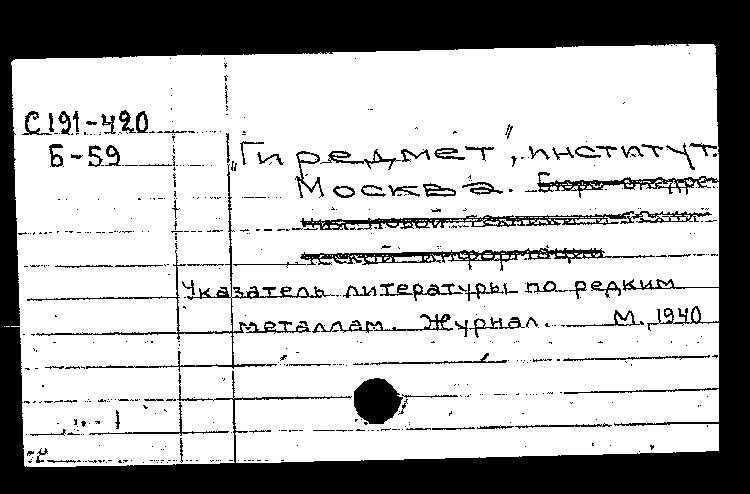 С191-420
Б-59
„Гиредмет", институт.
Москва. Бюро внедре-
ния новой техники и техни-
ческой информации
Указатель литературы по редким
металлам. Журнал. М., 1940